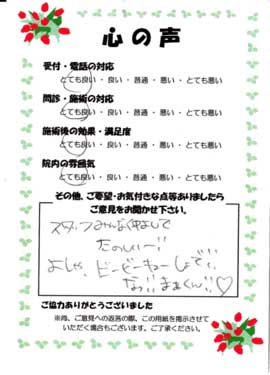 心の声
受付・電話の対応
とても良い ・ 良い ・ 普通 ・ 悪い ・ とても悪い
問診・施術の対応
とても良い ・ 良い ・ 普通 ・ 悪い ・ とても悪い
施術後の効果・満足度
とても良い ・ 良い ・ 普通 ・ 悪い ・ とても悪い
院内の雰囲気
とても良い ・ 良い ・ 普通 ・ 悪い ・ とても悪い
その他、ご要望・お気付きな点等ありましたら
ご意見をお聞かせ下さい。
スタッフみんな仲よしで
たのしいー!!
ご協力ありがとうございました
※尚、ご意見への返答の際、この用紙を掲示させて
いただく場合もございます。ご了承ください。